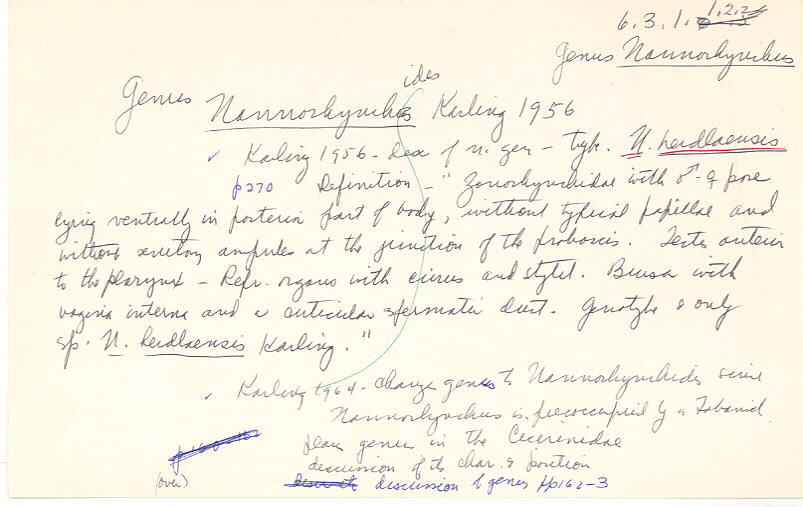 6.3.1.1.2.2
Genus Nannorhynchus
ides
Genus Nannorhynchus Karling 1956
✓ Karling 1956 - des of n. gen - type. N. herdlaensis
p270 Definition - " Zonorhynchidae with ♂-♀ pore
lying ventrally in posterior part of body, without typical papillae and
without secretory ampules at the junction of the proboscis. Testes anterior
to the pharynx - Repr. organs with cirrus and stylet. Bursa with
vagina interna and a cuticular spermatic duct. Genotype & only
sp. N. herdlaensis Karling."
✓ Karling 1964 - change genus to Nannorhynchides since
Nannorhynchus is preoccupied by a Tabanid.
places genus in the Cicerinidae
discussion of its char. & position
(over)
discussion of genus pp162-3